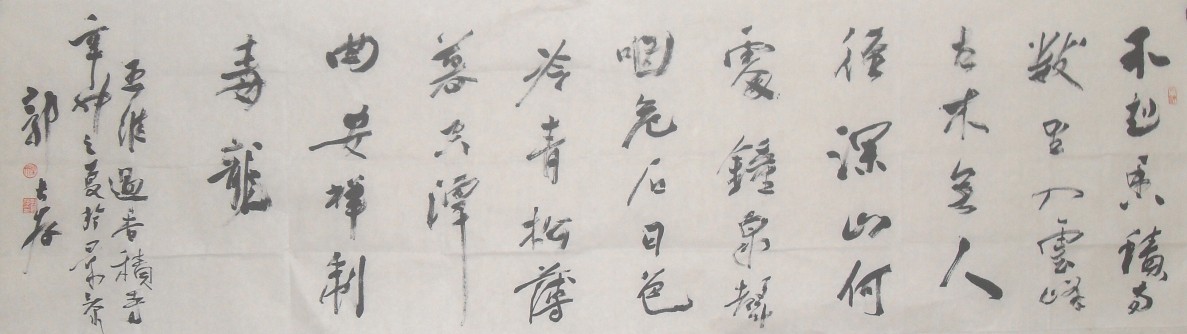 不知香積寺
數里入雲峰
古木無人
徑深山何
處鐘泉聲
咽危石日色
冷青松薄
暮空潭
曲安禪制
毒龍
王維過香積寺
辛卯之夏於
郭